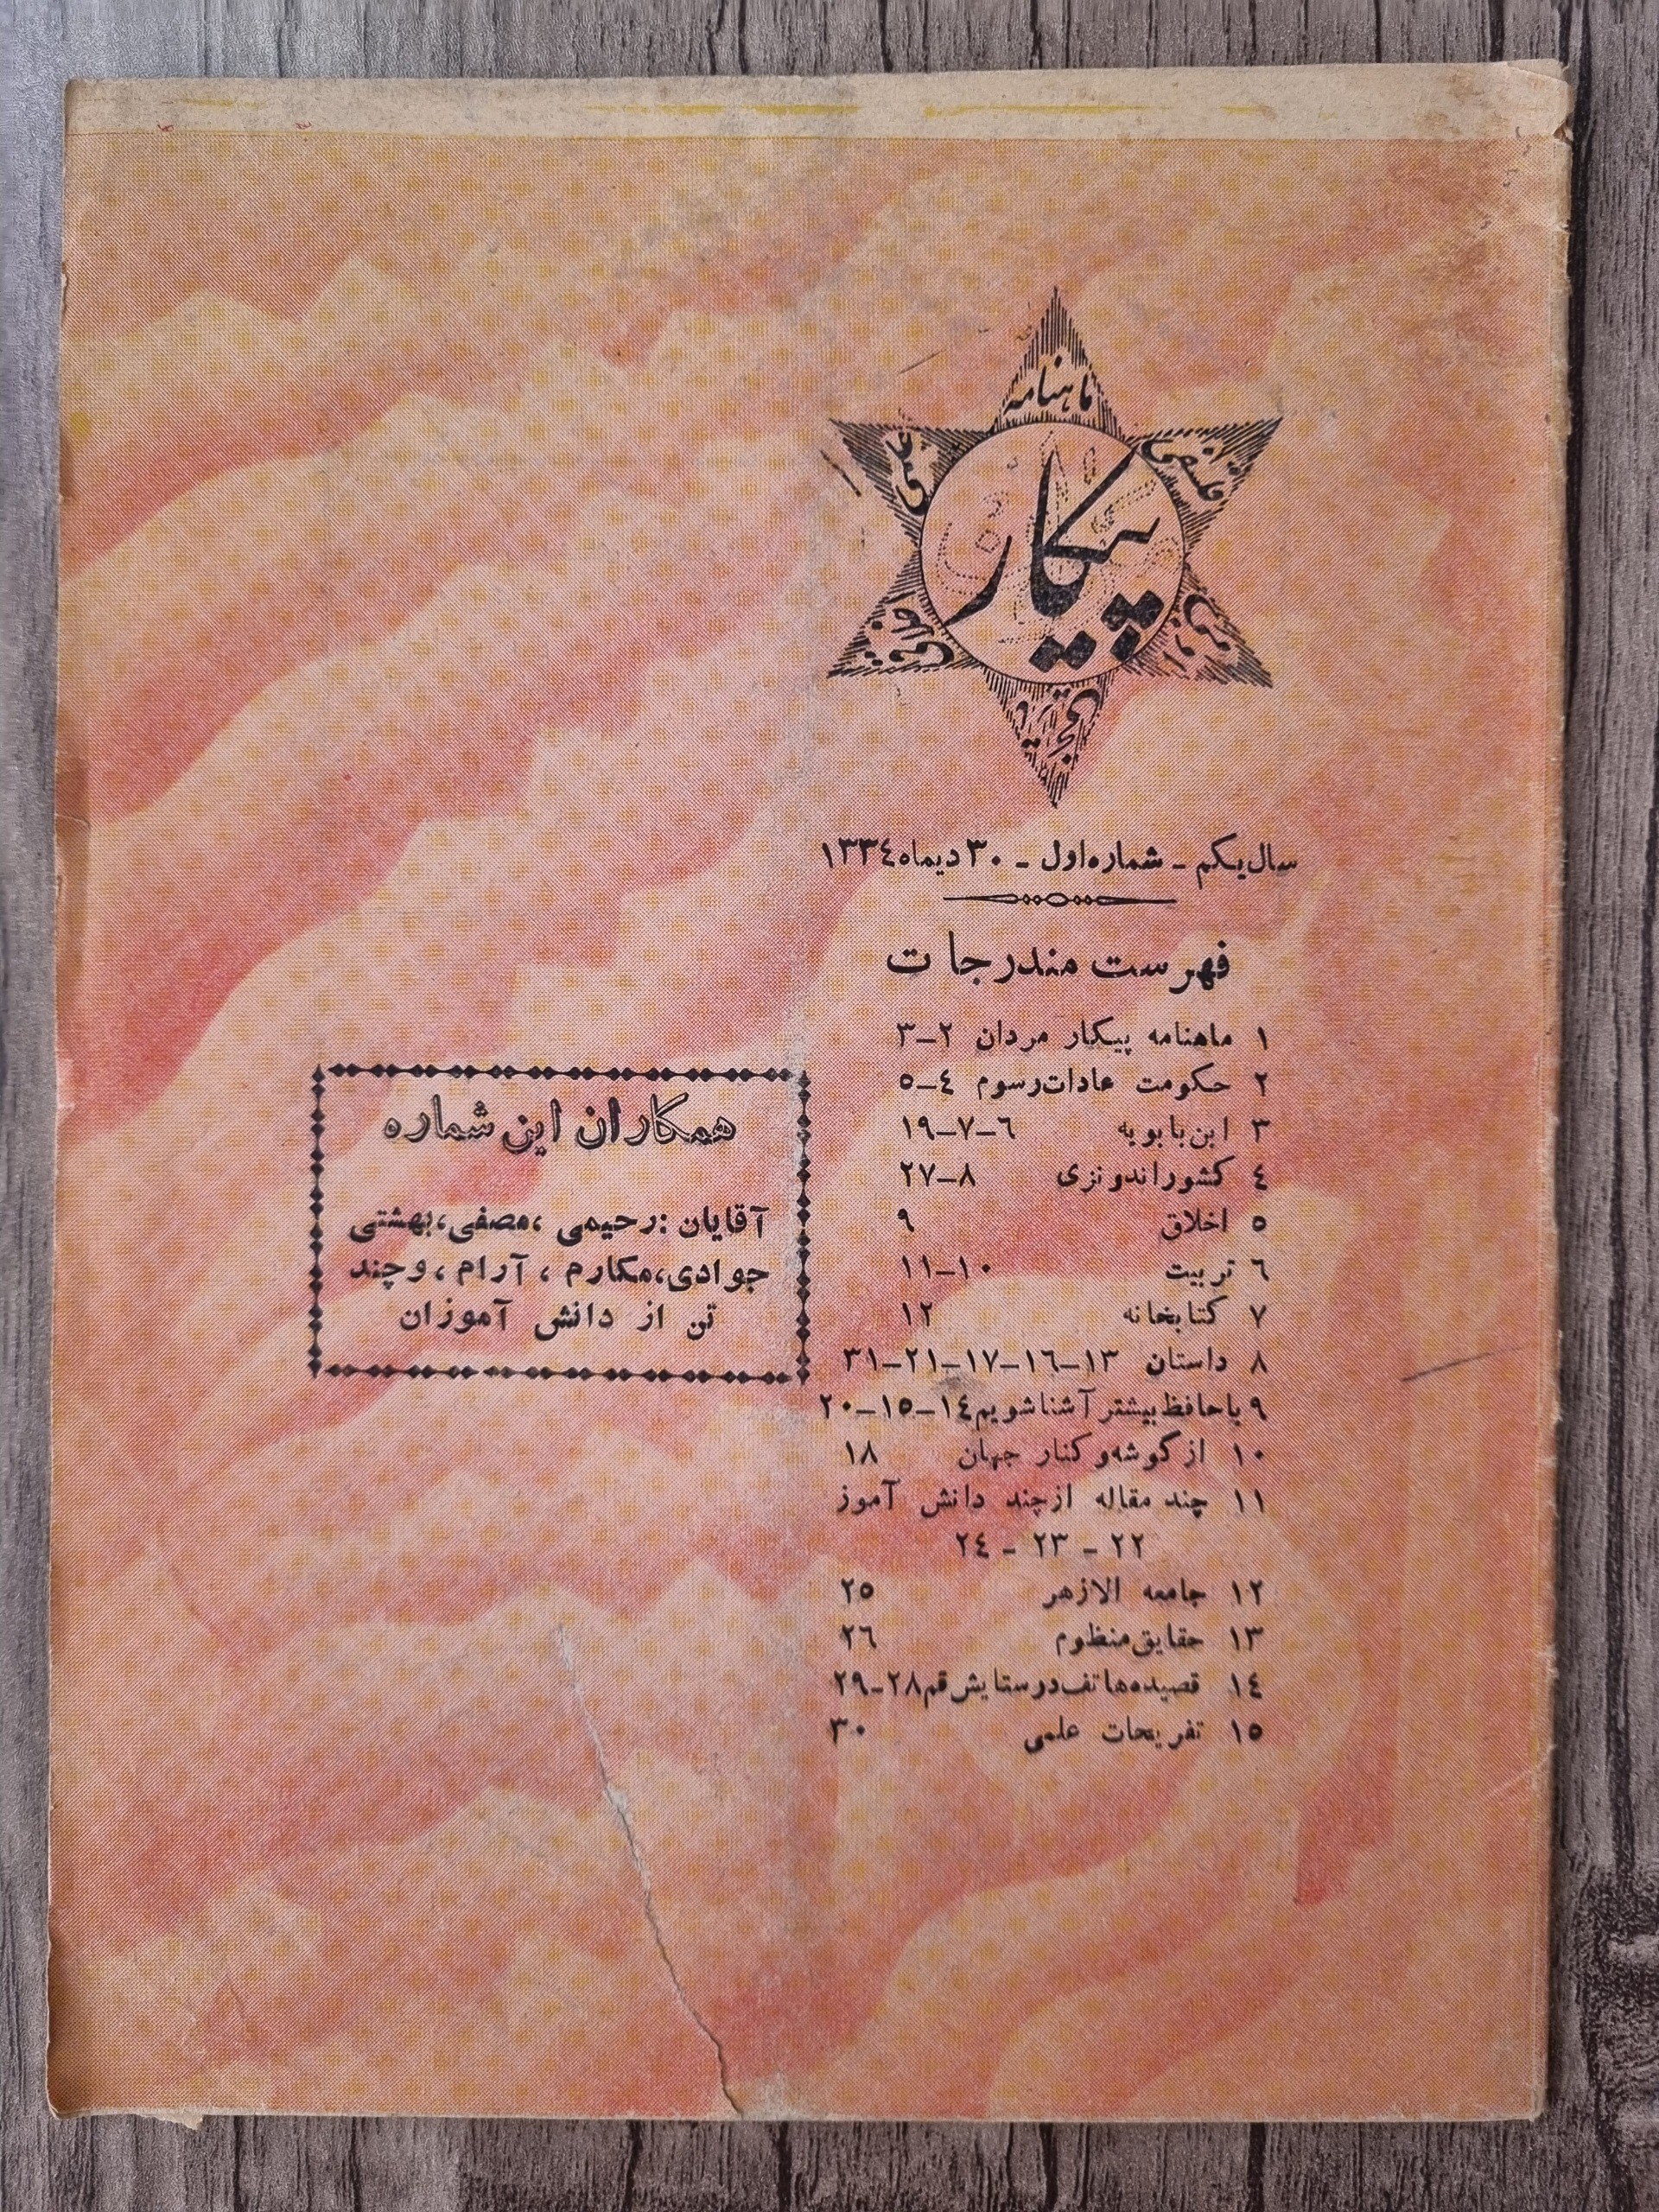 ماهنامه
فلسفی
علمی
پیکار
اجتماعی
تاریخی
سال یکم ـ شماره اول ـ ۳۰ دیماه ۱۳۳٤
فهرست مندرجات
۱ ماهنامه پیکار مردان ۲ـ۳
۲ حکومت عادات رسوم ٤ـ۵
۳ ابن بابویه ٦ـ۷ـ۱۹
٤ کشور اندونزی ۸ـ۲۷
۵ اخلاق ۹
٦ تربیت ۱۰ـ۱۱
۷ کتابخانه ۱۲
۸ داستان ۱۳ـ۱٦ـ۱۷ـ۲۱ـ۳۱
۹ با حافظ بیشتر آشنا شویم ۱٤ـ۱۵ـ۲۰
۱۰ از گوشه و کنار جهان ۱۸
۱۱ چند مقاله از چند دانش آموز
۲۲ ـ ۲۳ ـ ۲٤
۱۲ جامعه الازهر ۲۵
۱۳ حقایق منظوم ۲٦
۱٤ قصیده هاتف در ستایش قم ۲۸ـ۲۹
۱۵ تفریحات علمی ۳۰
همکاران این شماره
آقایان : رحیمی ، مصفی ، بهشتی
جوادی ، مکارم ، آرام ، و چند
تن از دانش آموزان